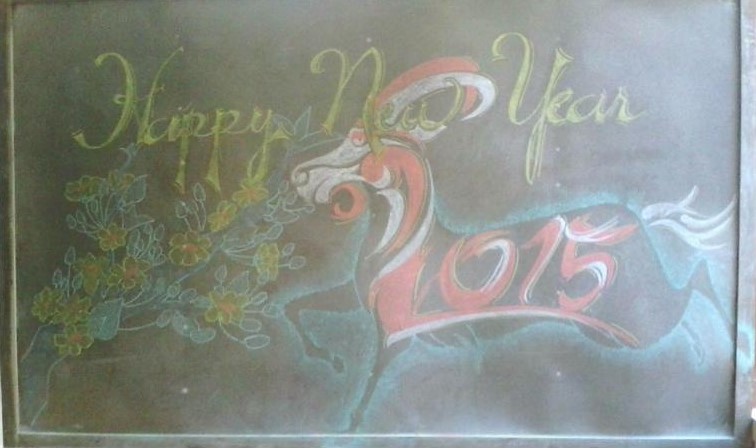 Happy New Year
2015